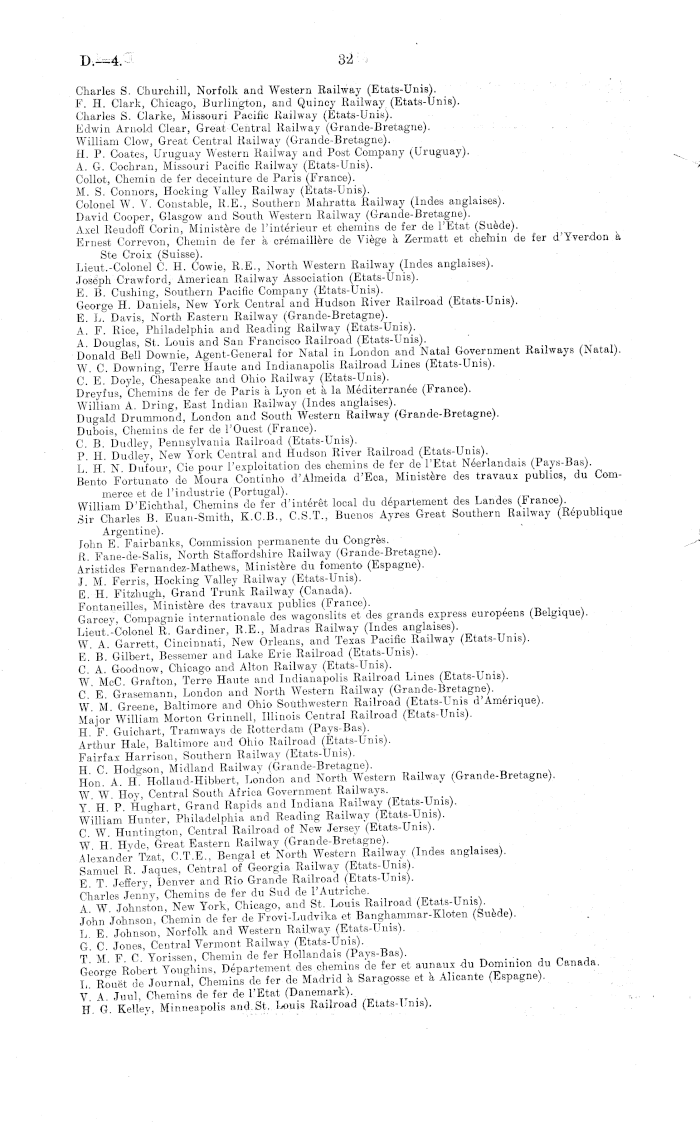 D.—4.
32
Charles S. Churchill, Norfolk and Western Railway (Etats-Unis).
F. H. Clark, Chicago, Burlington, and Quincy Railway (Etats-Unis).
Charles S. Clarke, Missouri Pacific Railway (Etats-Unis).
Edwin Arnold Clear, Great Central Railway (Grande-Bretagne).
William Clow, Great Central Railway (Grande-Bretagne).
H. P. Coates, Uruguay Western Railway and Post Company (Uruguay).
A. G. Cochran, Missouri Pacific Railway (Etats-Unis).
Collot, Chemin de fer deceinture de Paris (France).
M. S. Connors, Hocking Valley Railway (Etats-Unis).
Colonel W. V. Constable, R.E., Southern Mahratta Railway (Indes anglaises).
David Cooper, Glasgow and South Western Railway (Grande-Bretagne).
Axel Reudoff Corin, Ministère de l'intérieur et chemins de fer de l'Etat (Suède).
Ernest Correvon, Chemin de fer à crémaillère de Viège à Zermatt et chemin de fer d'Yverdon à
Ste Croix (Suisse).
Lieut.-Colonel C. H. Cowie, R.E., North Western Railway (Indes anglaises).
Joseph Crawford, American Railway Association (Etats-Unis).
E. B. Cushing, Southern Pacific Company (Etats-Unis).
George H. Daniels, New York Central and Hudson River Railroad (Etats-Unis).
E. L. Davis, North Eastern Railway (Grande-Bretagne).
A. F. Rice, Philadelphia and Reading Railway (Etats-Unis).
A. Douglas, St. Louis and San Francisco Railroad (Etats-Unis).
Donald Bell Downie, Agent-General for Natal in London and Natal Government Railways (Natal).
W. C. Downing, Terre Haute and Indianapolis Railroad Lines (Etats-Unis).
C. E. Doyle, Chesapeake and Ohio Railway (Etats-Unis).
Dreyfus, Chemins de fer de Paris à Lyon et à la Méditerranée (France).
William A. Dring, East Indian Railway (Indes anglaises).
Dugald Drummond, London and South Western Railway (Grande-Bretagne).
Dubois, Chemins de fer de l'Ouest (France).
C. B. Dudley, Pennsylvania Railroad (Etats-Unis).
P. H. Dudley, New York Central and Hudson River Railroad (Etats-Unis).
L. H. N. Dufour, Cie pour l'exploitation des chemins de fer de l'Etat Néerlandais (Pays-Bas).
Bento Fortunato de Moura Continho d'Almeida d'Eca, Ministère des travaux publics, du Com-
merce et de l'industrie (Portugal).
William D'Eichthal, Chemins de fer d'intérêt local du département des Landes (France).
Sir Charles B. Euan-Smith, K.C.B., C.S.T., Buenos Ayres Great Southern Railway (République
Argentine).
John E. Fairbanks, Commission permanente du Congrès.
R. Fane-de-Salis, North Staffordshire Railway (Grande-Bretagne).
Aristides Fernandez-Mathews, Ministère du fomento (Espagne).
J. M. Ferris, Hocking Valley Railway (Etats-Unis).
E. H. Fitzhugh, Grand Trunk Railway (Canada).
Fontaneilles, Ministère des travaux publics (France).
Garcey, Compagnie internationale des wagonslits et des grands express européens (Belgique).
Lieut.-Colonel R. Gardiner, R.E., Madras Railway (Indes anglaises).
W. A. Garrett, Cincinnati, New Orleans, and Texas Pacific Railway (Etats-Unis).
E. B. Gilbert, Bessemer and Lake Erie Railroad (Etats-Unis).
C. A. Goodnow, Chicago and Alton Railway (Etats-Unis).
W. McC. Grafton, Terre Haute and Indianapolis Railroad Lines (Etats-Unis).
C. E. Grasemann, London and North Western Railway (Grande-Bretagne).
W. M. Greene, Baltimore and Ohio Southwestern Railroad (Etats-Unis d'Amérique).
Major William Morton Grinnell, Illinois Central Railroad (Etats-Unis).
H. F. Guichart, Tramways de Rotterdam (Pays-Bas).
Arthur Hale, Baltimore and Ohio Railroad (Etats-Unis).
Fairfax Harrison, Southern Railway (Etats-Unis).
H. C. Hodgson, Midland Railway (Grande-Bretagne).
Hon. A. H. Holland-Hibbert, London and North Western Railway (Grande-Bretagne).
W. W. Hoy, Central South Africa Government Railways.
Y. H. P. Hughart, Grand Rapids and Indiana Railway (Etats-Unis).
William Hunter, Philadelphia and Reading Railway (Etats-Unis).
C. W. Huntington, Central Railroad of New Jersey (Etats-Unis).
W. H. Hyde, Great Eastern Railway (Grande-Bretagne).
Alexander Tzat, C.T.E., Bengal et North Western Railway (Indes anglaises).
Samuel R. Jaques, Central of Georgia Railway (Etats-Unis).
E. T. Jeffery, Denver and Rio Grande Railroad (Etats-Unis).
Charles Jenny, Chemins de fer du Sud de l'Autriche.
A. W. Johnston, New York, Chicago, and St. Louis Railroad (Etats-Unis).
John Johnson, Chemin de fer de Frovi-Ludvika et Banghammar-Kloten (Suède).
L. E. Johnson, Norfolk and Western Railway (Etats-Unis).
G. C. Jones, Central Vermont Railway (Etats-Unis).
T. M. F. C. Yorissen, Chemin de fer Hollandais (Pays-Bas).
George Robert Youghins, Département des chemins de fer et aunaux du Dominion du Canada.
L. Rouët de Journal, Chemins de fer de Madrid à Saragosse et à Alicante (Espagne).
V. A. Juul, Chemins de fer de l'Etat (Danemark).
H. G. Kelley, Minneapolis and St. Louis Railroad (Etats-Unis).